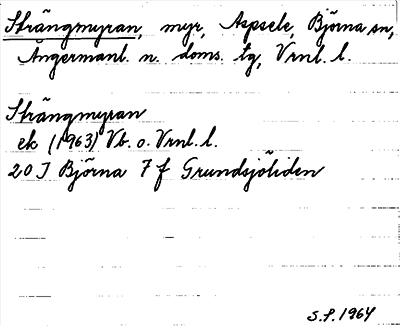 Strängmyran, myr, Aspsele, Björna sn,
Ångermanl. n. doms. tg, Vrnl. l.
Strängmyran
ek (1963) Vb. o. Vrnl. l.
20 J Björna 7 f Grundsjöliden
S.P. 1964